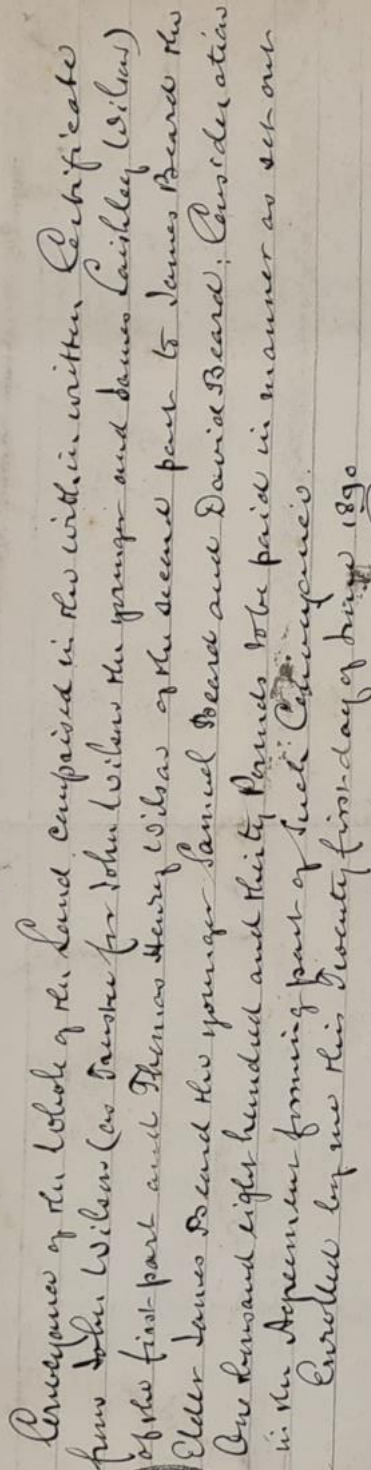 Conveyance of the Whole of the Land comprised in the within written Certificate
from John Wilson (as Trustee for John Wilson the younger and James Laishley Wilson)
of the first part and Thomas Henry Wilson of the second part to James Beard the
Elder James Beard the younger Samuel Beard and David Beard; Consideration
One thousand eight hundred and thirty Pounds to be paid in manner as set out
in the Agreement forming part of such Conveyance.
Enrolled by me this Twenty first day of June 1890